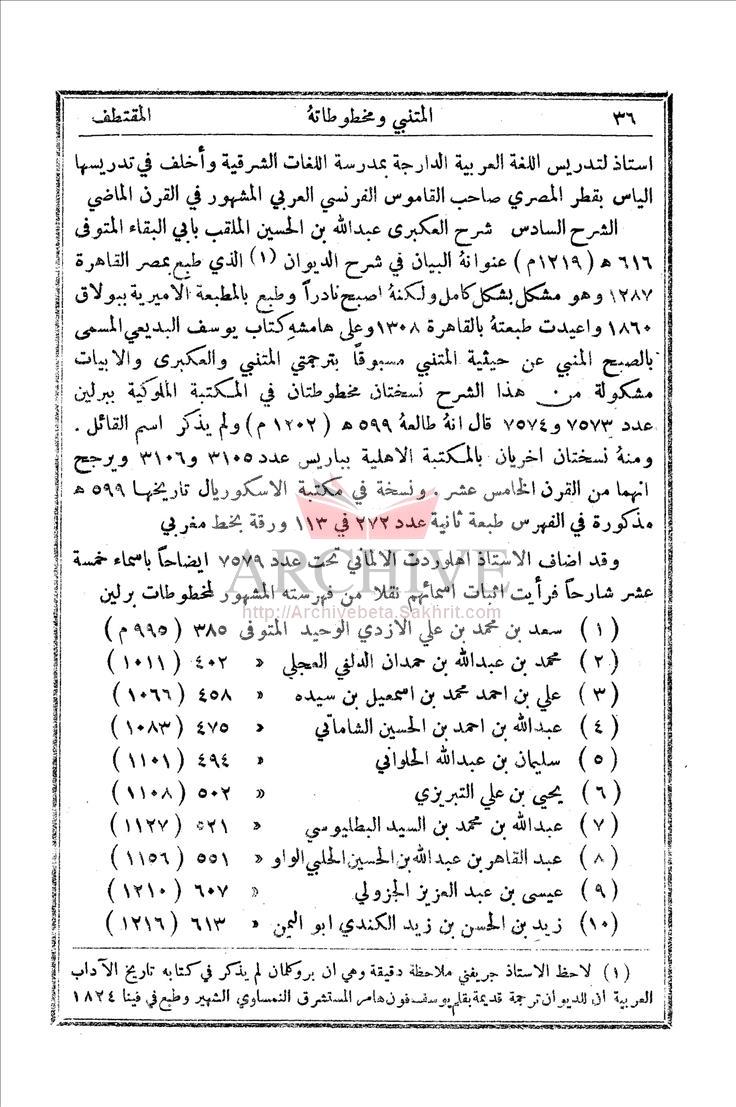 ٣٦ المتنبي ومخطوطاتهُ المقتطف
استاذ لتدريس اللغة العربية الدارجة بمدرسة اللغات الشرقية وأخلف في تدريسها
الياس بقطر المصري صاحب القاموس الفرنسي العربي المشهور في القرن الماضي
الشرح السادس شرح العكبرى عبدالله بن الحسين الملقب بابي البقاء المتوفى
٦١٦ ه (١٢١٩م) عنوانهُ البيان في شرح الديوان (١) الذي طبع بمصر القاهرة
١٢٨٧ وهو مشكل بشكل كامل ولكنهُ اصبح نادراً وطبع بالمطبعة الاميرية ببولاق
١٨٦٠ واعيدت طبعتهُ بالقاهرة ١٣٠٨ وعلى هامشهِ كتاب يوسف البديعي المسمى
بالصبح المنبي عن حيثية المتنبي مسبوقاً بترجمتي المتنبي والعكبرى والابيات
مشكولة من هذا الشرح نسختان مخطوطتان في المكتبة الملوكية ببرلين
عدد ٧٥٧٣ و٧٥٧٤ قال انهُ طالعهُ ٥٩٩ ه (١٢٠٢ م) ولم يذكر اسم القائل .
ومنهُ نسختان اخريان بالمكتبة الاهلية بباريس عدد ٣١٠٥ و٣١٠٦ ويرجح
انهما من القرن الخامس عشر . ونسخة في مكتبة الاسكوريال تاريخها ٥٩٩ ه
مذكورة في الفهرس طبعة ثانية عدد ٢٧٢ في ١١٣ ورقة بخط مغربي
وقد اضاف الاستاذ اهلوردت الالماني تحت عدد ٧٥٧٩ ايضاحاً باسماء خمسة
عشر شارحاً فرأيت اثبات اسمائهم نقلا من فهرسته المشهور لمخطوطات برلين
ARCHIVE
http://Archivebeta.Sakhrit.com
(١) سعد بن محمد بن علي الازدي الوحيد المتوفى ٣٨٥ (٩٩٥ م)
(٢) محمد بن عبدالله بن حمدان الدلفي العجلي » ٤٠٢ (١٠١١)
(٣) علي بن احمد محمد بن اسمعيل بن سيده » ٤٥٨ (١٠٦٦)
(٤) عبدالله بن احمد بن الحسين الشاماتي » ٤٧٥ (١٠٨٣)
(٥) سليمان بن عبدالله الحلواني » ٤٩٤ (١١٠١)
(٦) يحيى بن علي التبريزي » ٥٠٢ (١١٠٨)
(٧) عبدالله بن محمد بن السيد البطليوسي » ٥٢١ (١١٢٧)
(٨) عبد القاهر بن عبدالله بن الحسين الحلبي الواو » ٥٥١ (١١٥٦)
(٩) عيسى بن عبد العزيز الجزولي » ٦٠٧ (١٢١٠)
(١٠) زيد بن الحسن بن زيد الكندي ابو اليمن » ٦١٣ (١٢١٦)
(١) لاحظ الاستاذ جريفني ملاحظة دقيقة وهي ان بروكلمان لم يذكر في كتابه تاريخ الآداب
العربية ان للديوان ترجمة قديمة بقلم يوسف فون هامر المستشرق النمساوي الشهير وطبع في فينا ١٨٢٤